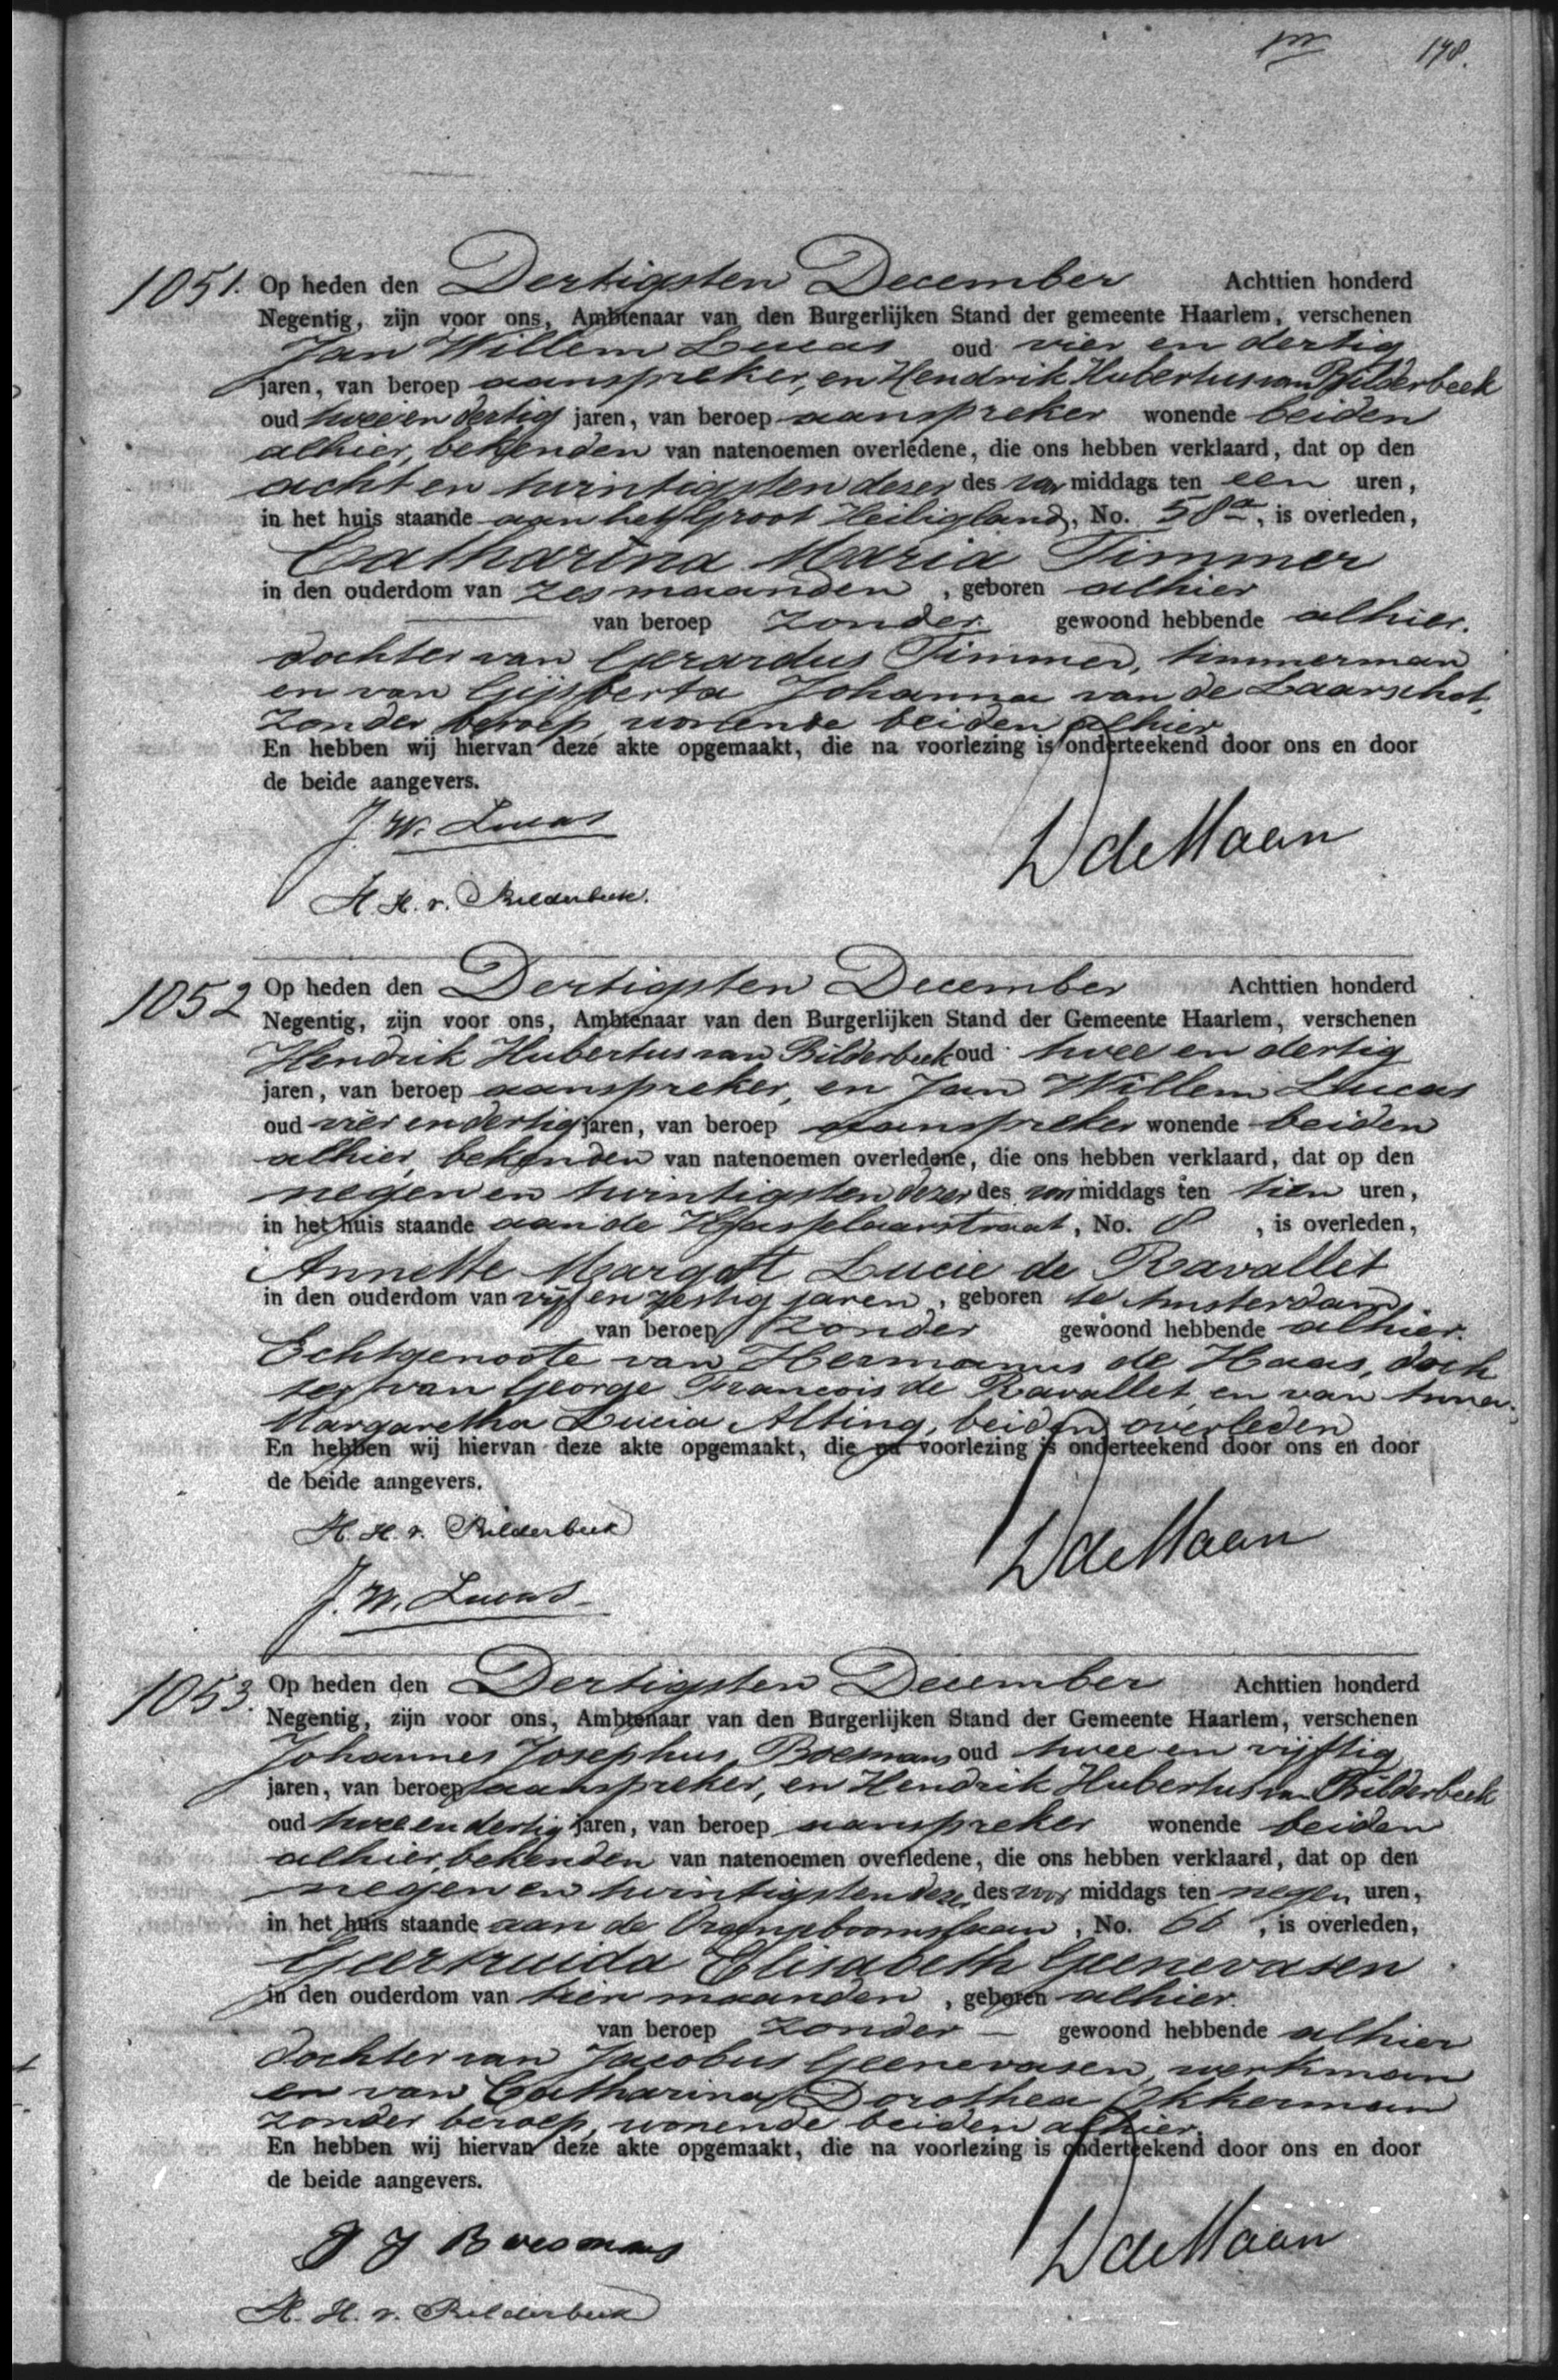 178.
1051. Op heden den Dertigsten December Achttien honderd
Negentig, zijn voor ons, Ambtenaar van den Burgerlijken Stand der gemeente Haarlem, verschenen
Jan Willem Lucas oud vier en dertig
jaren, van beroep aanspreker, en Hendrik Hubertus van Bilderbeek
oud twee en dertig jaren, van beroep aanspreker wonende beiden
alhier, bekenden van natenoemen overledene, die ons hebben verklaard, dat op den
acht en twintigsten dezer des voormiddags ten een uren,
in het huis staande aan het Groot Heiligland, No. 58a, is overleden,
Catharina Maria Timmer
in den ouderdom van zes maanden, geboren alhier
van beroep zonder gewoond hebbende alhier.
dochter van Gerardus Timmer, timmerman
en van Gijsberta Johanna van de Laarschot,
zonder beroep, wonende beiden alhier
En hebben wij hiervan deze akte opgemaakt, die na voorlezing is onderteekend door ons en door
de beide aangevers.
J. W. Lucas
D de Haan
H. H. v. Bilderbeek.
1052 Op heden den Dertigsten December Achttien honderd
Negentig, zijn voor ons, Ambtenaar van den Burgerlijken Stand der Gemeente Haarlem, verschenen
Hendrik Hubertus van Bilderbeek oud twee en dertig
jaren, van beroep aanspreker, en Jan Willem Lucas
oud vier en dertig jaren, van beroep aanspreker wonende beiden
alhier, bekenden van natenoemen overledene, die ons hebben verklaard, dat op den
negen en twintigsten dezer des voormiddags ten tien uren,
in het huis staande aan de Hasselaarstraat, No. 8, is overleden,
Annette Margott Lucie de Ravallet
in den ouderdom van vijf en zestig jaren, geboren te Amsterdam,
van beroep zonder gewoond hebbende alhier.
Echtgenoote van Hermanus de Haas, doch
ter van George Francois de Ravallet en van Anna
Margaretha Lucia Alting, beiden overleden
En hebben wij hiervan deze akte opgemaakt, die na voorlezing is onderteekend door ons en door
de beide aangevers.
H. H. v. Bilderbeek
D de Haan
J. W. Lucas
1053. Op heden den Dertigsten December Achttien honderd
Negentig, zijn voor ons, Ambtenaar van den Burgerlijken Stand der Gemeente Haarlem, verschenen
Johannes Josephus Boesmans oud twee en vijftig
jaren, van beroep aanspreker, en Hendrik Hubertus van Bilderbeek
oud twee en dertig jaren, van beroep aanspreker wonende beiden
alhier, bekenden van natenoemen overledene, die ons hebben verklaard, dat op den
negen en twintigsten dezer des voormiddags ten negen uren,
in het huis staande aan de Oranjeboomslaan, No. 66, is overleden,
Geertruida Elisabeth Geenevasen
in den ouderdom van tien maanden, geboren alhier.
van beroep zonder — gewoond hebbende alhier
dochter van Jacobus Geenevasen, werkman
en van Catharina Dorothea Okkerman
zonder beroep, wonende beiden alhier,
En hebben wij hiervan deze akte opgemaakt, die na voorlezing is onderteekend door ons en door
de beide aangevers.
J J Boesmans
D de Haan
H. H. v. Bilderbeek